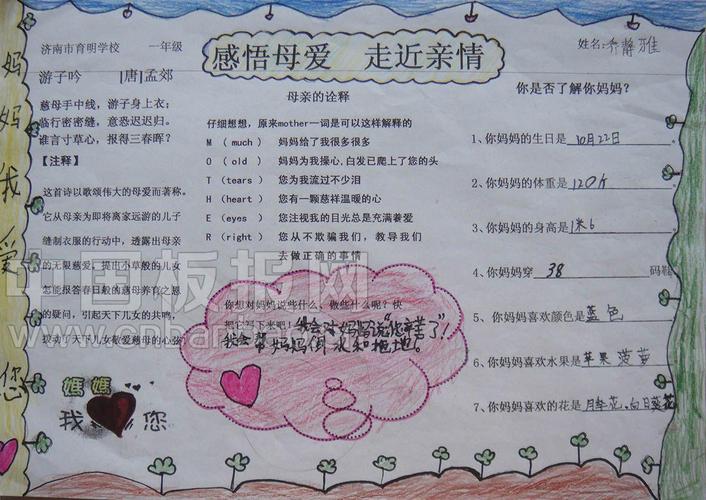 济南市育明学校 一年级
感悟母爱 走近亲情
姓名:乔静雅
游子吟 [唐]孟郊
慈母手中线，游子身上衣；
临行密密缝，意恐迟迟归。
谁言寸草心，报得三春晖？
【注释】
这首诗以歌颂伟大的母爱而著称。
它从母亲为即将离家远游的儿子
缝制衣服的行动中，透露出母亲
的无限慈爱，提出小草般的儿女
怎能报答春日般的慈母养育之恩
的疑问，引起天下儿女的共鸣，
拨动了天下儿女敬爱慈母的心弦
媽媽
我 您
母亲的诠释
仔细想想，原来mother一词是可以这样解释的
M ( much ) 妈妈给了我很多很多
O ( old ) 妈妈为我操心,白发已爬上了您的头
T (tears ) 您为我流过不少泪
H (heart ) 您有一颗慈祥温暖的心
E (eyes ) 您注视我的目光总是充满着爱
R (right ) 您从不欺骗我们，教导我们
去做正确的事情
你想对妈妈说些什么、做些什么呢？快
把它写下来吧！我会对妈妈说"您辛苦了"!
我会帮妈妈倒水和拖地。
你是否了解你妈妈？
1、你妈妈的生日是 10月22日
2、你妈妈的体重是 120斤
3、你妈妈的身高是 1米6
4、你妈妈穿 38 码鞋
5、你妈妈喜欢颜色是 蓝色
6、你妈妈喜欢水果是 苹果 菠萝
7、你妈妈喜欢的花是 月季花、向日葵花
妈妈我爱您
中国板报网